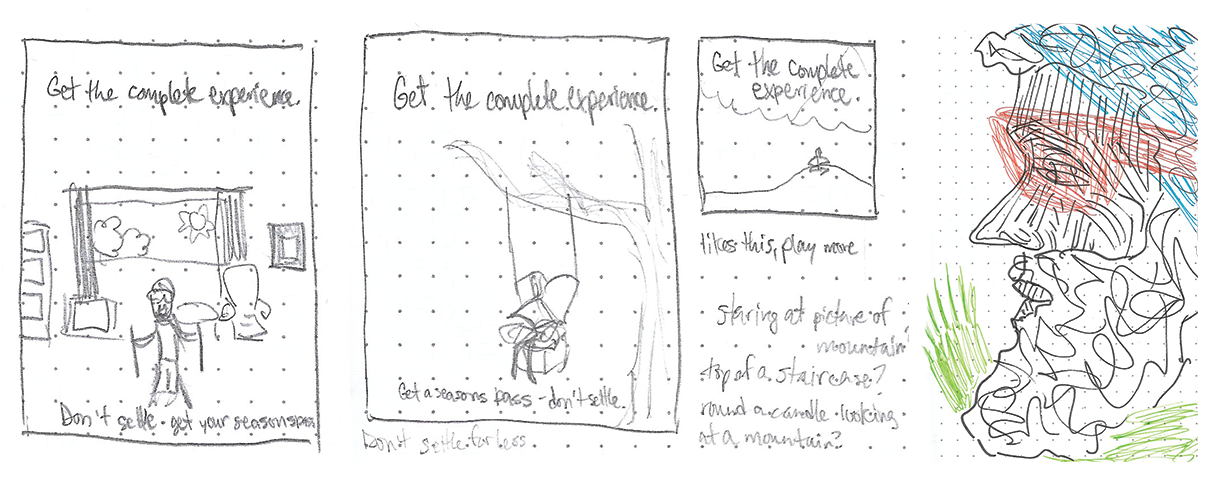 Get the complete experience.
Don't settle. get your seasons pass
Get the complete experience.
Get a seasons pass - don't settle.
Don't settle for less.
Get the complete
experience.
likes this, play more
staring at picture of
mountain?
top of a staircase?
round a candle looking
at a mountain?